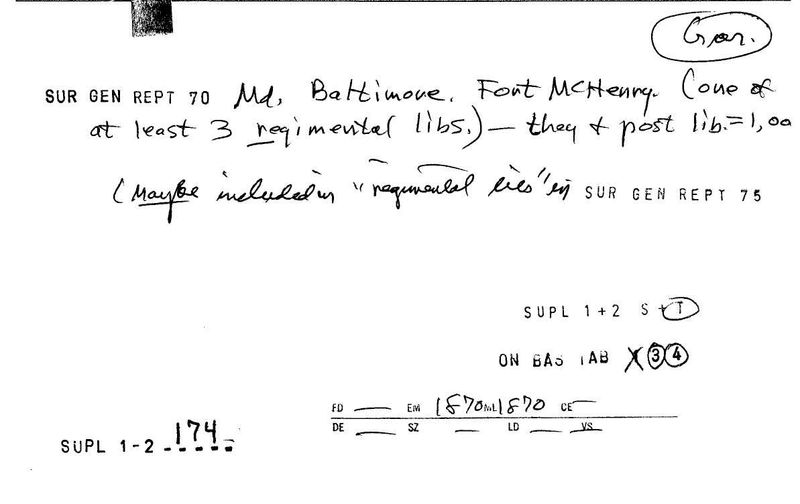 Gar.
SUR GEN REPT 70 Md, Baltimore. Fort McHenry. (one of
at least 3 regimental libs.) — they + post lib. = 1,00
(Maybe included in "regimental libs" in SUR GEN REPT 75
SUPL 1+2 S + T
ON BAS TAB X 3 4
FD — EM 1870 ML 1870 CE —
DE — SZ — LD — VS —
SUPL 1-2 174